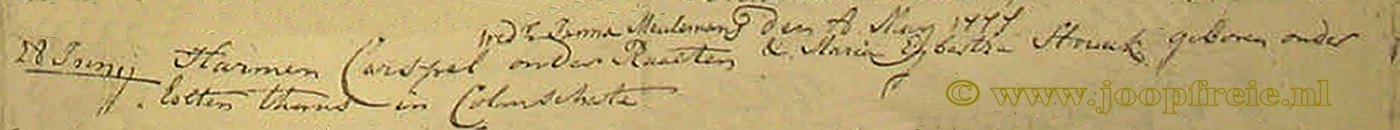 wedr Janna Meulemans den 8 May 1777
28 Junij Harmen Carspel onder Raalten & Maria Egberta Stouk geboren onder
Eolten thans in Colmschate
© www.joopfreie.nl